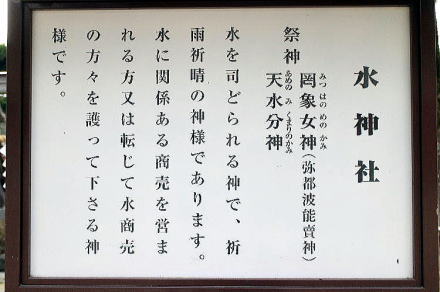 水神社
祭神
罔象女神(弥都波能賣神)
みつはのめのかみ
天水分神
あめのみくまりのかみ
水を司どられる神で、祈
雨祈晴の神様であります。
水に関係ある商売を営ま
れる方又は転じて水商売
の方々を護って下さる神
様です。